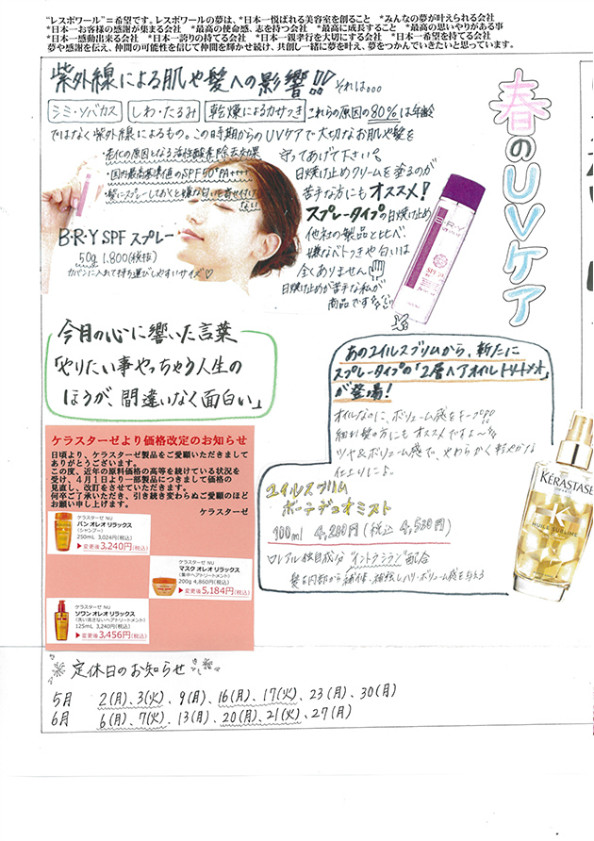 "レスポワール"=希望です。レスポワールの夢は、*日本一悦ばれる美容室を創ること *みんなの夢が叶えられる会社
*日本一お客様の感謝が集まる会社 *最高の使命感、志を持つ会社 *最高に成長すること *最高の思いやりがある事
*日本一感動出来る会社 *日本一誇りの持てる会社 *日本一親孝行を大切にする会社 *日本一希望を持てる会社
夢や感謝を伝え、仲間の可能性を信じて仲間を輝かせ続け、共創し一緒に夢を叶え、夢をつかんでいきたいと思っています。
春のUVケア
紫外線による肌や髪への影響!! それは...
シミ・ソバカス しわ・たるみ 乾燥によるカサつき これらの原因の80%は年齢
ではなく紫外線によるもの。この時期からのUVケアで大切なお肌や髪を
守ってあげて下さい
・老化の原因となる活性酸素除去効果
・国内最高基準値のSPF50 PA++++
・髪にスプレーしておくと嫌な匂いを寄せ付けない
B・R・Y SPF スプレー
50g 1,800(税抜)
カバンに入れて持ち運びしやすいサイズ♡
日焼け止めクリームを塗るのが
苦手な方にもオススメ!
スプレータイプの日焼け止め
他社の製品と比べ
嫌なベトつきや匂いは
全くありません
日焼け止めが苦手な私が
商品です
B・R・Y
今月の心に響いた言葉
「やりたい事やっちゃう人生の
ほうが、間違いなく面白い」
あのユイルスブリムから、新たに
スプレータイプの「2層ヘアオイルトリートメント」
が登場!
オイルなのに、ボリューム感をキープ
細い髪の方にもオススメですよ〜
ツヤ&ボリューム感で、やわらかく軽やかな
仕上りに♪
ユイルスブリム
ボーテデュオミスト
100ml 4,200円(税込 4,530円)
ロレアル独自成分"イントラシラン"配合
髪を内部から補修、補強しハリ・ボリューム感を与える
KÉRASTASE
HUILE SUBLIME
ケラスターゼより価格改定のお知らせ
日頃より、ケラスターゼ製品をご愛顧いただきまして
ありがとうございます。
この度、近年の原料価格の高等を続けている状況を
受け、4月1日より一部製品につきまして価格の
見直し、改訂をさせていただきます。
何卒ご了承いただき、引き続き変わらぬご愛顧のほど
お願い申し上げます。 ケラスターゼ
ケラスターゼ NU
バン オレオ リラックス
(シャンプー)
250mL 3,024円(税込)
▶変更後3,240円(税込)
ケラスターゼ NU
マスク オレオ リラックス
(集中ヘアトリートメント)
200g 4,860円(税込)
▶変更後5,184円(税込)
ケラスターゼ NU
ソワン オレオ リラックス
(洗い流さないヘアトリートメント)
125mL 3,240円(税込)
▶変更後3,456円(税込)
定休日のお知らせ
5月 2(月)、3(火)、9(月)、16(月)、17(火)、23(月)、30(月)
6月 6(月)、7(火)、13(月)、20(月)、21(火)、27(月)